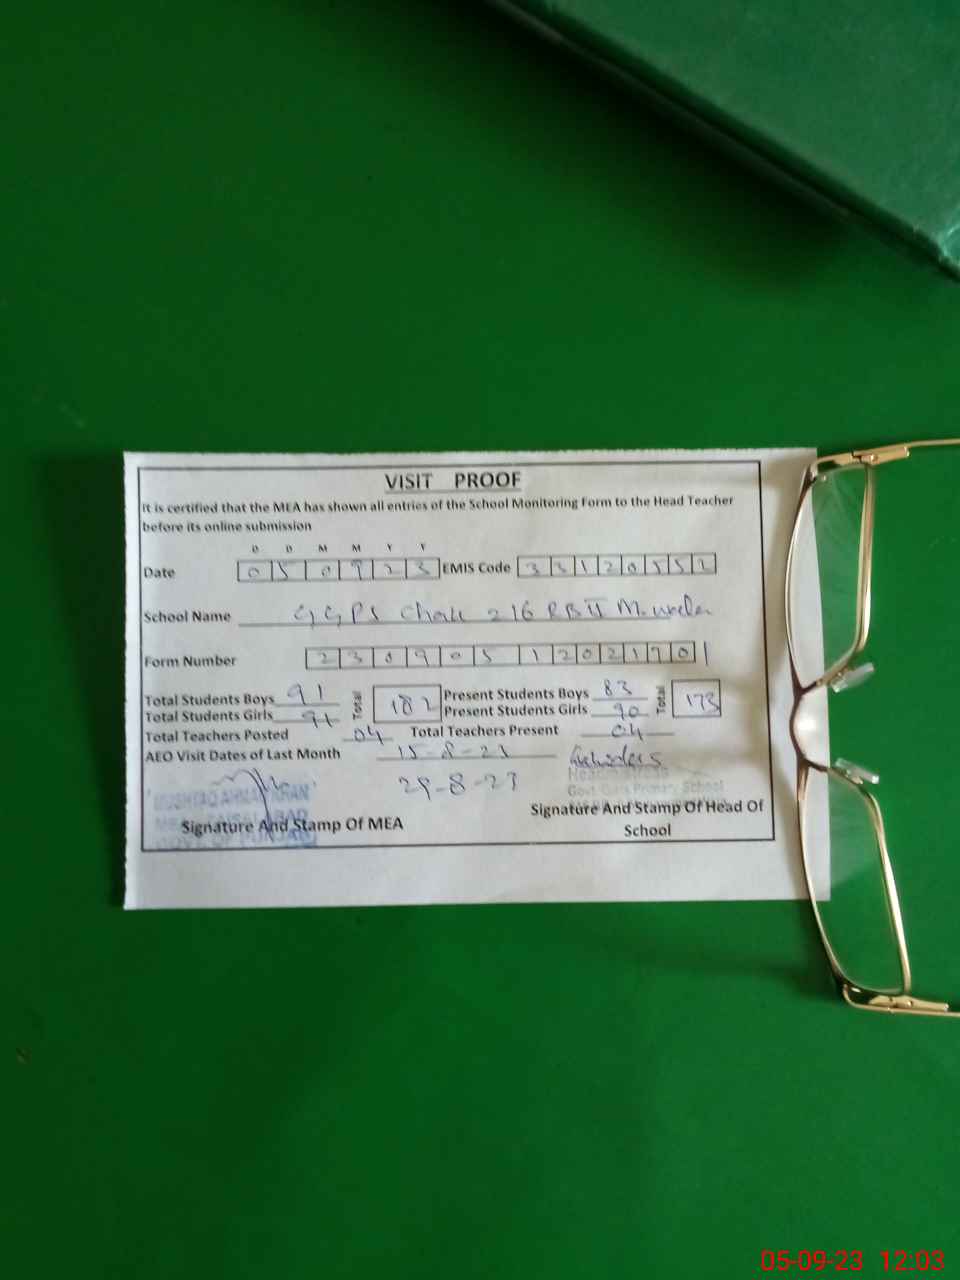 VISIT PROOF
It is certified that the MEA has shown all entries of the School Monitoring Form to the Head Teacher
before its online submission
D D M M Y Y
Date 0 5 0 9 2 3 EMIS Code 3 3 1 2 0 5 5 2
School Name GGPS Chak 216 RB II
Form Number 2 3 0 9 0 5 1 2 0 2 1 7 0 1
Total Students Boys 91 Total 182 Present Students Boys 83 Total 173
Total Students Girls 91 Present Students Girls 90
Total Teachers Posted 04 Total Teachers Present 04
AEO Visit Dates of Last Month 15-8-23
29-8-23
Headmistress
Govt. Girls Primary School
MUSHTAQ AHMAD
Signature And Stamp Of MEA
Signature And Stamp Of Head Of
School
05-09-23 12:03